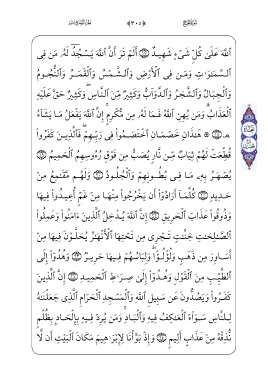 ٱللَّهَ عَلَىٰ كُلِّ شَىْءٍ شَهِيدٌ ۝ أَلَمْ تَرَ أَنَّ ٱللَّهَ يَسْجُدُ لَهُۥ مَن فِى
ٱلسَّمَٰوَٰتِ وَمَن فِى ٱلْأَرْضِ وَٱلشَّمْسُ وَٱلْقَمَرُ وَٱلنُّجُومُ
وَٱلْجِبَالُ وَٱلشَّجَرُ وَٱلدَّوَآبُّ وَكَثِيرٌ مِّنَ ٱلنَّاسِ وَكَثِيرٌ حَقَّ عَلَيْهِ
ٱلْعَذَابُ وَمَن يُهِنِ ٱللَّهُ فَمَا لَهُۥ مِن مُّكْرِمٍ إِنَّ ٱللَّهَ يَفْعَلُ مَا يَشَآءُ
۝ ۞ هَٰذَانِ خَصْمَانِ ٱخْتَصَمُوا۟ فِى رَبِّهِمْ فَٱلَّذِينَ كَفَرُوا۟
قُطِّعَتْ لَهُمْ ثِيَابٌ مِّن نَّارٍ يُصَبُّ مِن فَوْقِ رُءُوسِهِمُ ٱلْحَمِيمُ ۝
يُصْهَرُ بِهِۦ مَا فِى بُطُونِهِمْ وَٱلْجُلُودُ ۝ وَلَهُم مَّقَٰمِعُ مِنْ
حَدِيدٍ ۝ كُلَّمَآ أَرَادُوٓا۟ أَن يَخْرُجُوا۟ مِنْهَا مِنْ غَمٍّ أُعِيدُوا۟ فِيهَا
وَذُوقُوا۟ عَذَابَ ٱلْحَرِيقِ ۝ إِنَّ ٱللَّهَ يُدْخِلُ ٱلَّذِينَ ءَامَنُوا۟ وَعَمِلُوا۟
ٱلصَّٰلِحَٰتِ جَنَّٰتٍ تَجْرِى مِن تَحْتِهَا ٱلْأَنْهَٰرُ يُحَلَّوْنَ فِيهَا مِنْ
أَسَاوِرَ مِن ذَهَبٍ وَلُؤْلُؤًا وَلِبَاسُهُمْ فِيهَا حَرِيرٌ ۝ وَهُدُوٓا۟ إِلَى
ٱلطَّيِّبِ مِنَ ٱلْقَوْلِ وَهُدُوٓا۟ إِلَىٰ صِرَٰطِ ٱلْحَمِيدِ ۝ إِنَّ ٱلَّذِينَ
كَفَرُوا۟ وَيَصُدُّونَ عَن سَبِيلِ ٱللَّهِ وَٱلْمَسْجِدِ ٱلْحَرَامِ ٱلَّذِى جَعَلْنَٰهُ
لِلنَّاسِ سَوَآءً ٱلْعَٰكِفُ فِيهِ وَٱلْبَادِ وَمَن يُرِدْ فِيهِ بِإِلْحَادٍۭ بِظُلْمٍ
نُّذِقْهُ مِنْ عَذَابٍ أَلِيمٍ ۝ وَإِذْ بَوَّأْنَا لِإِبْرَٰهِيمَ مَكَانَ ٱلْبَيْتِ أَن لَّا